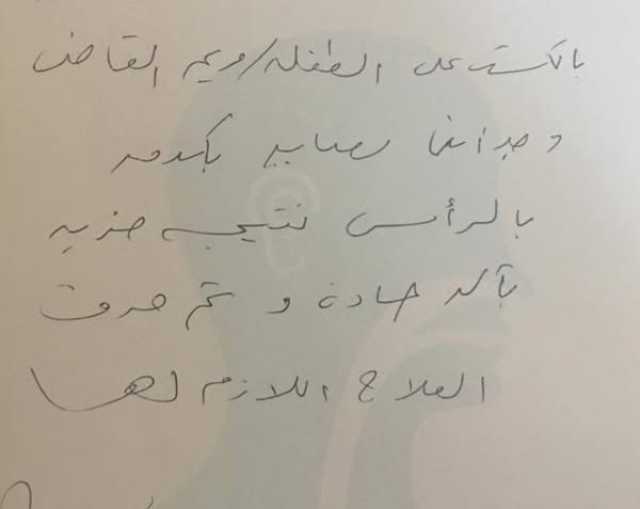 بالكشف على الطفلة / ريم القاضى
وجد انها مصابه بكدمه
بالرأس نتيجه ضربه
بآله حادة و تم صرف
العلاج اللازم لها